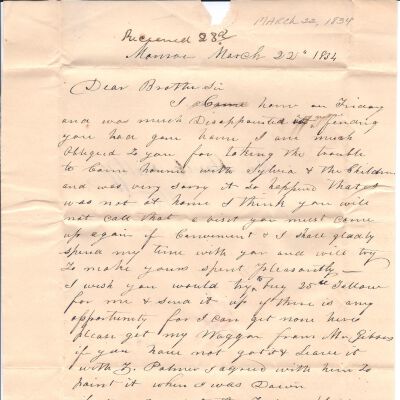 MARCH 22, 1834
Received 23d
Monroe March 22d 1834
Dear Brother Sir
I Came home on Friday
and was much Disappointed in finding
you had gone home I am much
Obliged to you for taking the trouble
to Come hound with Sylvia & the Children
and was very sorry it so happind that I
was not at home I think you will
not call that a visit you must Come
up again if Convenient & I shall gladly
spend my time with you and will try
to make yours spent Pleasantly —
I wish you would try to buy 25 lb Tallow
for me & send it up if there is any
opportunity for I can get none here
please get my Waggon from Mr Gibbons
if you have not got it & Leave it
with Z. Palmer I agreed with him to
paint it when I was Down